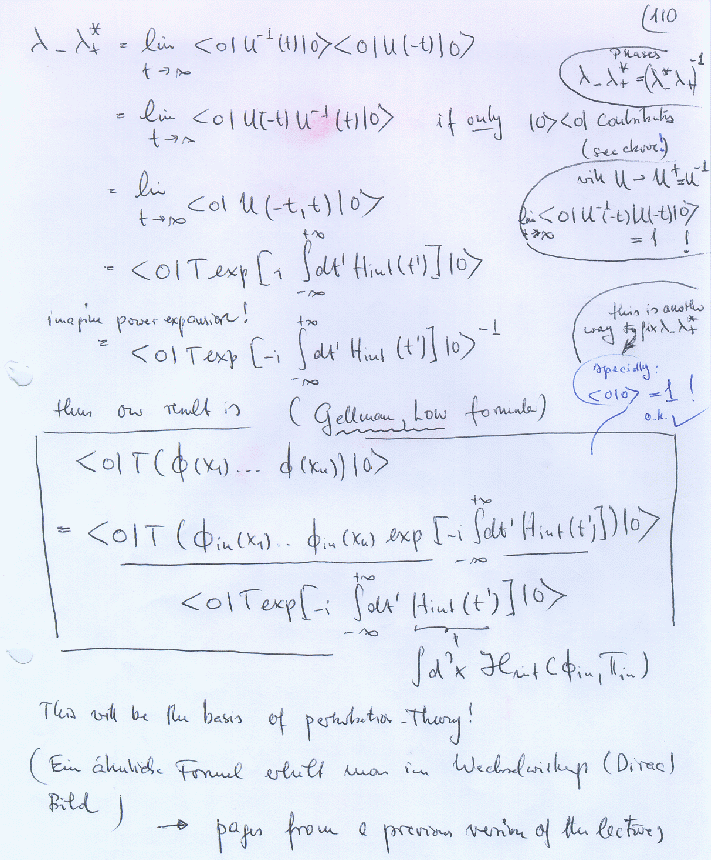 (110
λ_- λ_+^* = lim_{t→∞} <0|U^{-1}(t)|0><0|U(-t)|0>
Phases
λ_- λ_+^* = (λ_-^* λ_+)^{-1}
= lim_{t→∞} <0|U(-t) U^{-1}(t)|0> if only |0><0| contributes
(see above!)
= lim_{t→∞} <0|U(-t,t)|0>
with U → U^† = U^{-1}
lim_{t→∞} <0|U^{-1}(-t)U(-t)|0>
= 1 !
= <0|T exp[i ∫_{-∞}^{+∞} dt' H_int(t')]|0>
imagine power expansion!
= <0|T exp[-i ∫_{-∞}^{+∞} dt' H_int(t')]|0>^{-1}
this is another
way to fix λ_- λ_+^*
specially:
<0|0> = 1 !
o.k. ✓
thus our result is (Gellman, Low formula)
<0|T(ϕ(x_1)... ϕ(x_n))|0>
= <0|T(ϕ_in(x_1).. ϕ_in(x_n) exp[-i ∫_{-∞}^{+∞} dt' H_int(t')])|0>
<0|T exp[-i ∫_{-∞}^{+∞} dt' H_int(t')]|0>
∫d^3x ℋ_int(ϕ_in, Π_in)
This will be the basis of perturbation-Theory!
(Ein ähnliche Formel erhält man im Wechselwirkungs (Dirac)
Bild)
→ pages from a previous version of the lectures